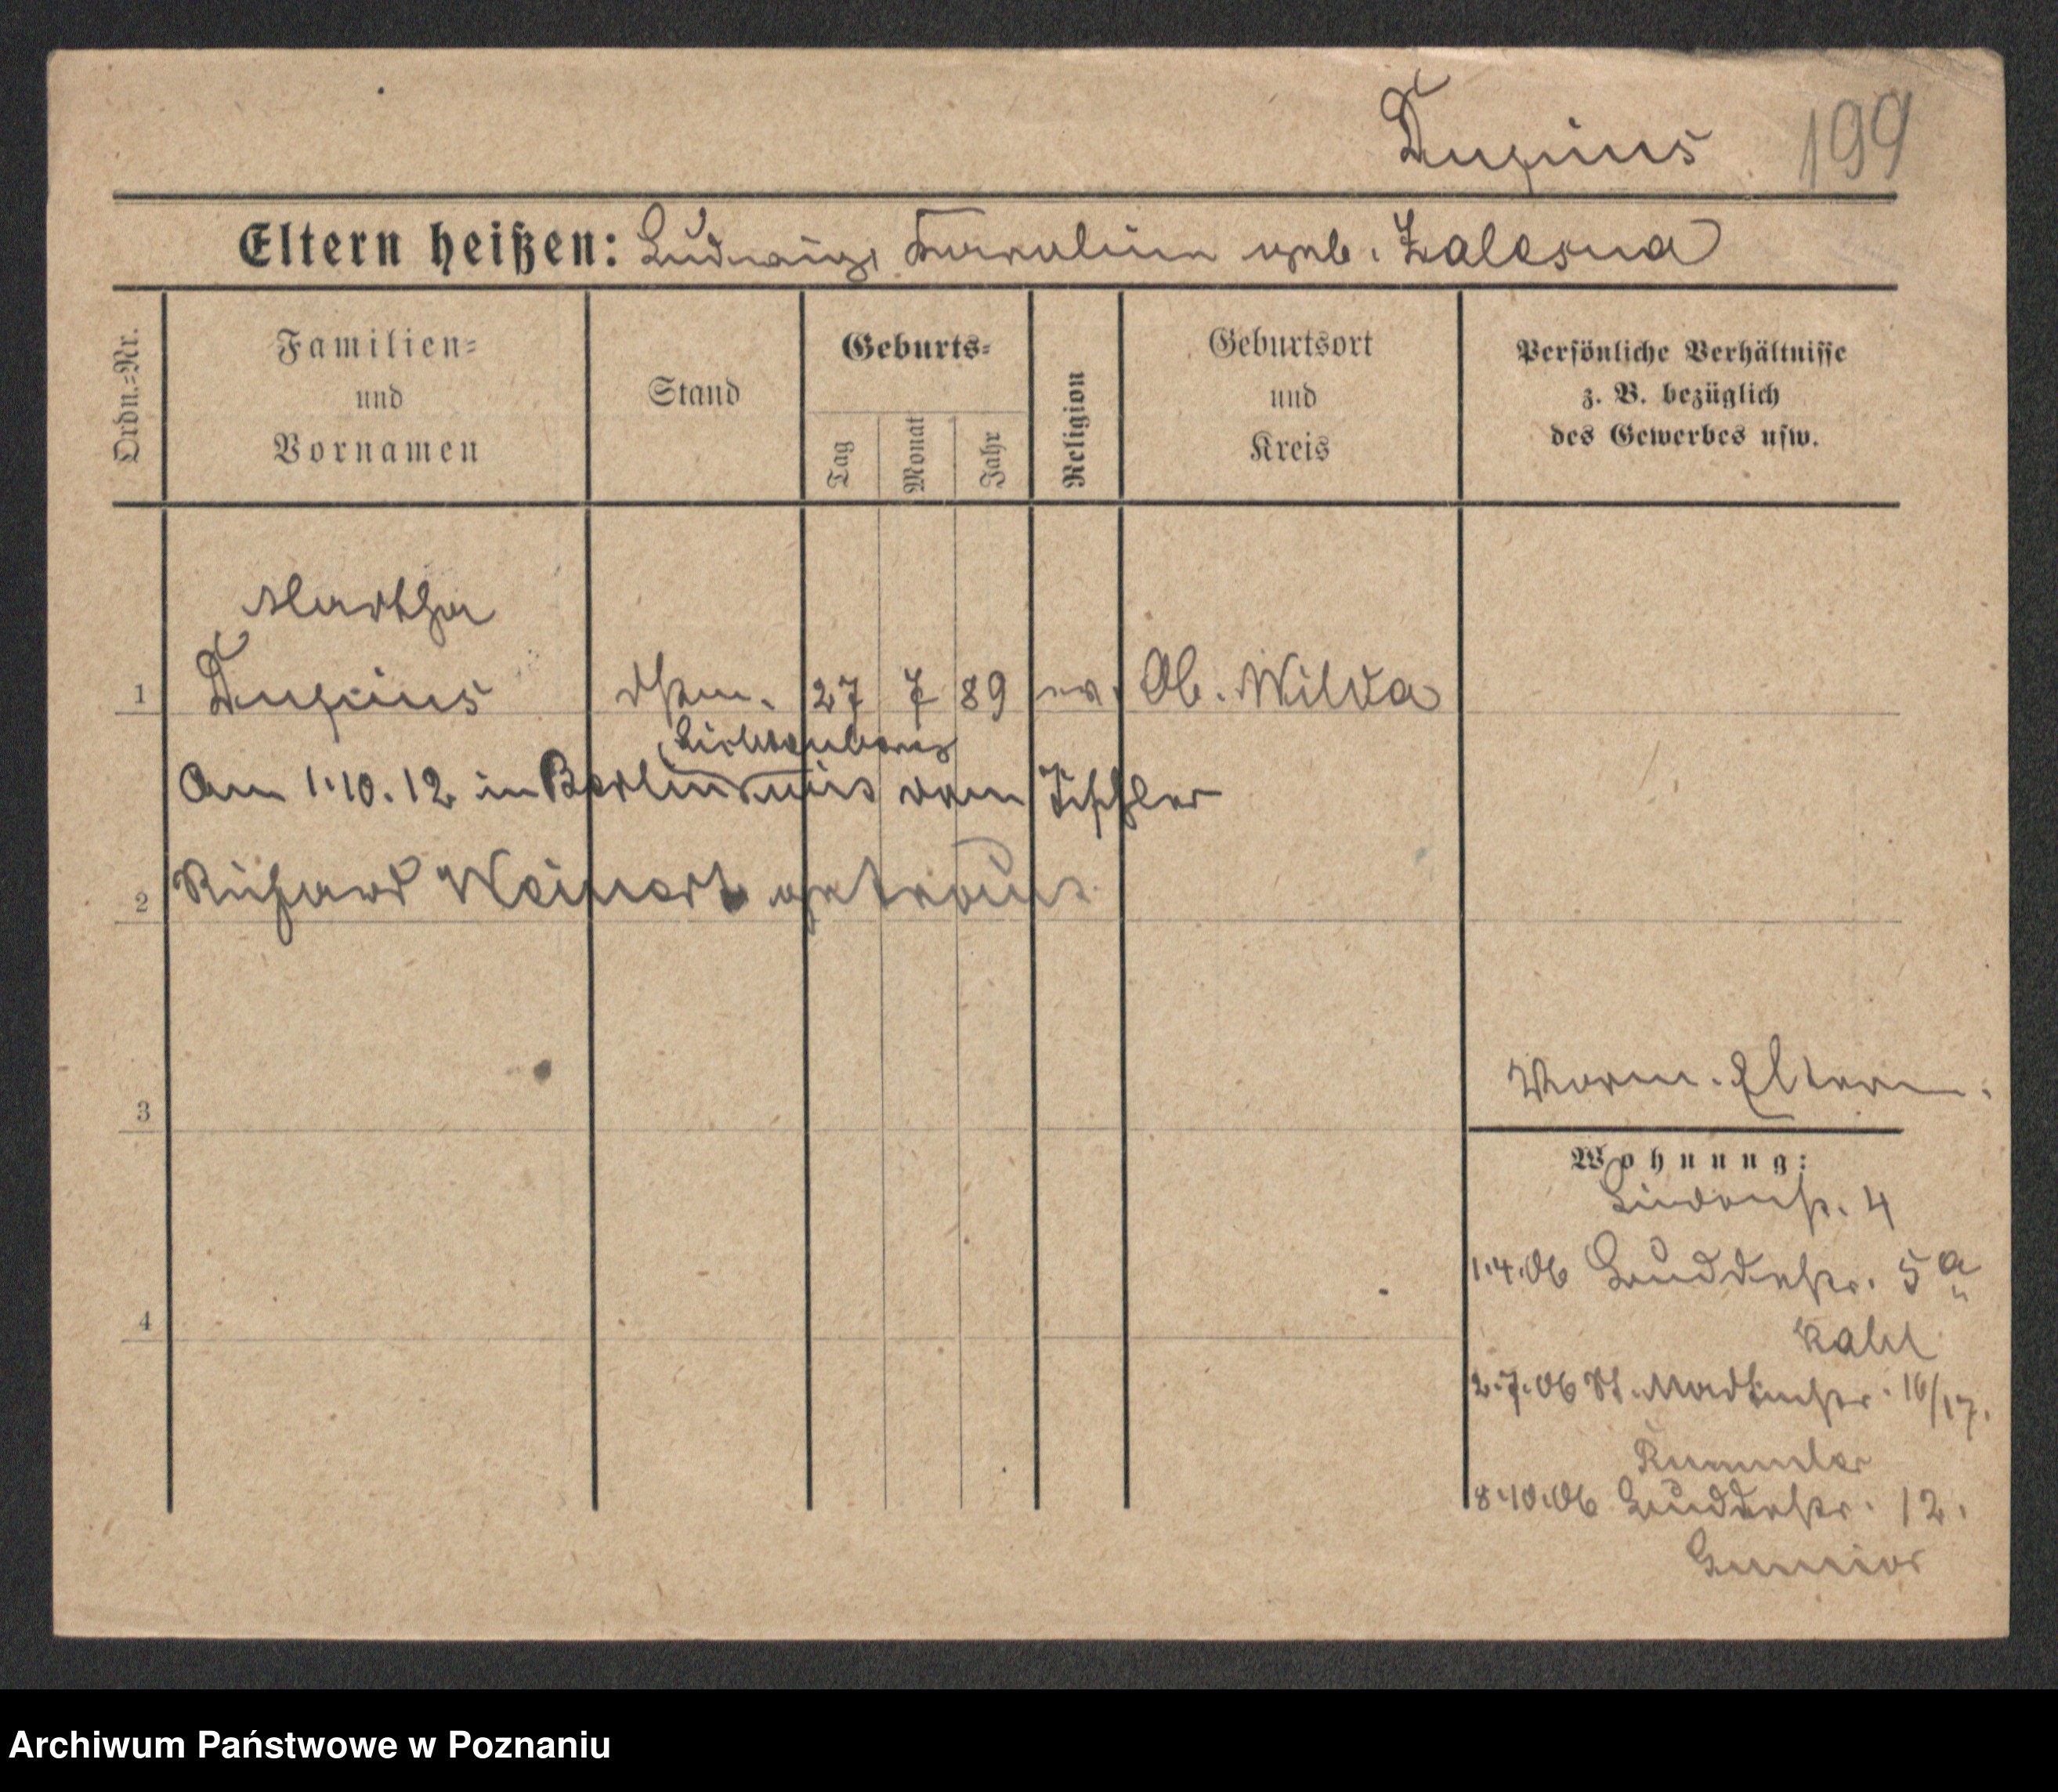 199
Eltern heißen: Ludwig, Karoline geb. Zalesna
Ordn.=Nr.
Familien=
und
Vornamen
Stand
Geburts=
Tag
Monat
Jahr
Religion
Geburtsort
und
Kreis
Persönliche Verhältnisse
z. B. bezüglich
des Gewerbes usw.
Martha
1
27 7 89 ev. Ob. Wilda
Lichtenberg
Am 1.10.12 in Berlin vom Tischler
2 Richard Weinert getraut.
3
Worm. Eltern.
Wohnung:
Lindenstr. 4
1.4.06 5a
4
2.7.06 St. Martinstr. 16/17.
Rummler
8.10.06 12.
Archiwum Państwowe w Poznaniu